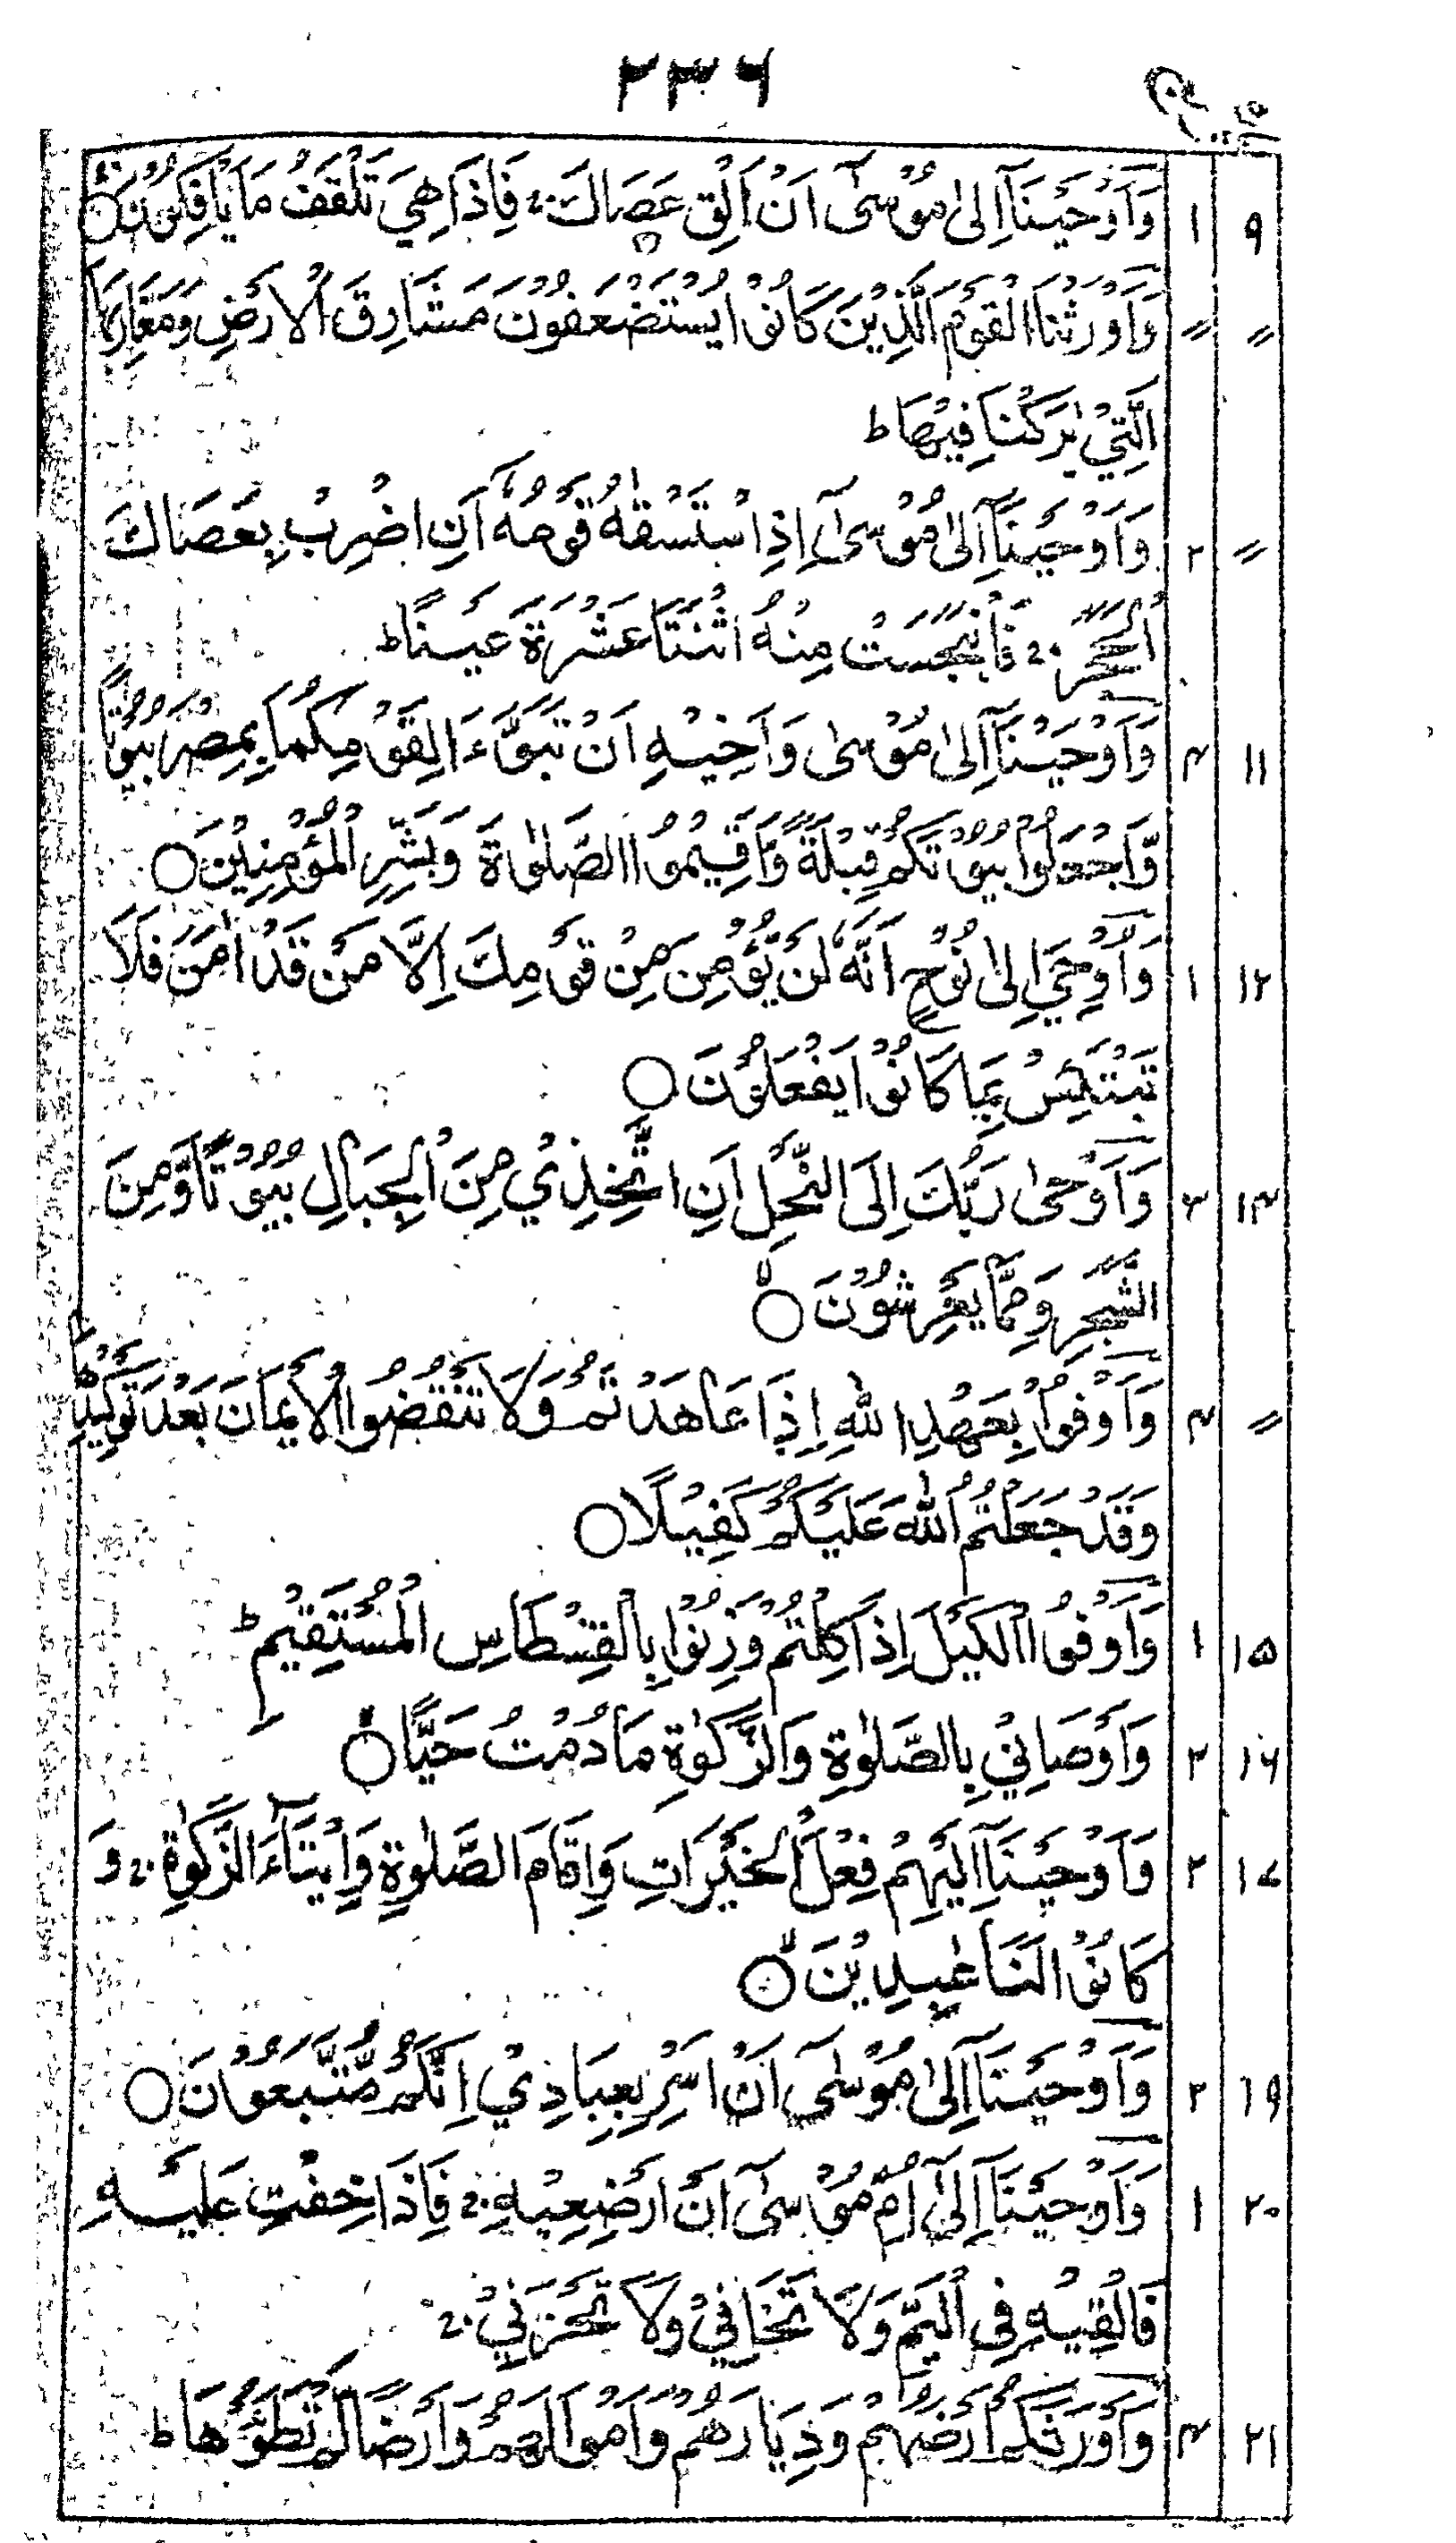 ۲۳۶
۹ ۱ وَاَوْحَيْنَآ اِلٰى مُوْسٰٓى اَنْ اَلْقِ عَصَاكَ ۚ فَاِذَا هِيَ تَلْقَفُ مَا يَاْفِكُوْنَ ○
〃 〃 وَاَوْرَثْنَا الْقَوْمَ الَّذِيْنَ كَانُوْا يُسْتَضْعَفُوْنَ مَشَارِقَ الْاَرْضِ وَمَغَارِبَهَا
الَّتِيْ بٰرَكْنَا فِيْهَا ط
〃 ۲ وَاَوْحَيْنَآ اِلٰى مُوْسٰٓى اِذِ اسْتَسْقٰىهُ قَوْمُهٗٓ اَنِ اضْرِبْ بِعَصَاكَ
الْحَجَرَ ۚ فَانْۢبَجَسَتْ مِنْهُ اثْنَتَا عَشْرَةَ عَيْنًا ط
۱۱ ۴ وَاَوْحَيْنَآ اِلٰى مُوْسٰى وَاَخِيْهِ اَنْ تَبَوَّءَا لِقَوْمِكُمَا بِمِصْرَ بُيُوْتًا
وَّاجْعَلُوْا بُيُوْتَكُمْ قِبْلَةً وَّاَقِيْمُوا الصَّلٰوةَ وَبَشِّرِ الْمُؤْمِنِيْنَ ○
۱۲ ۱ وَاُوْحِيَ اِلٰى نُوْحٍ اَنَّهٗ لَنْ يُّؤْمِنَ مِنْ قَوْمِكَ اِلَّا مَنْ قَدْ اٰمَنَ فَلَا
تَبْتَئِسْ بِمَا كَانُوْا يَفْعَلُوْنَ ○
۱۴ ۳ وَاَوْحٰى رَبُّكَ اِلَى النَّحْلِ اَنِ اتَّخِذِيْ مِنَ الْجِبَالِ بُيُوْتًا وَّمِنَ
الشَّجَرِ وَمِمَّا يَعْرِشُوْنَ ○ۙ
〃 ۴ وَاَوْفُوْا بِعَهْدِ اللّٰهِ اِذَا عَاهَدْتُّمْ وَلَا تَنْقُضُوا الْاَيْمَانَ بَعْدَ تَوْكِيْدِهَا
وَقَدْ جَعَلْتُمُ اللّٰهَ عَلَيْكُمْ كَفِيْلًا ○
۱۵ ۱ وَاَوْفُوا الْكَيْلَ اِذَا كِلْتُمْ وَزِنُوْا بِالْقِسْطَاسِ الْمُسْتَقِيْمِ ط
۱۶ ۲ وَاَوْصَانِيْ بِالصَّلٰوةِ وَالزَّكٰوةِ مَا دُمْتُ حَيًّا ○
۱۷ ۲ وَاَوْحَيْنَآ اِلَيْهِمْ فِعْلَ الْخَيْرَاتِ وَاِقَامَ الصَّلٰوةِ وَاِيْتَآءَ الزَّكٰوةِ ۚ وَ
كَانُوْا لَنَا عٰبِدِيْنَ ○ۙ
۱۹ ۲ وَاَوْحَيْنَآ اِلٰى مُوْسٰٓى اَنْ اَسْرِ بِعِبَادِيْ اِنَّكُمْ مُّتَّبَعُوْنَ ○
۲۰ ۱ وَاَوْحَيْنَآ اِلٰٓى اُمِّ مُوْسٰٓى اَنْ اَرْضِعِيْهِ ۚ فَاِذَا خِفْتِ عَلَيْهِ
فَاَلْقِيْهِ فِي الْيَمِّ وَلَا تَخَافِيْ وَلَا تَحْزَنِيْ ۚ
۲۱ ۴ وَاَوْرَثَكُمْ اَرْضَهُمْ وَدِيَارَهُمْ وَاَمْوَالَهُمْ وَاَرْضًا لَّمْ تَطَئُوْهَا ط